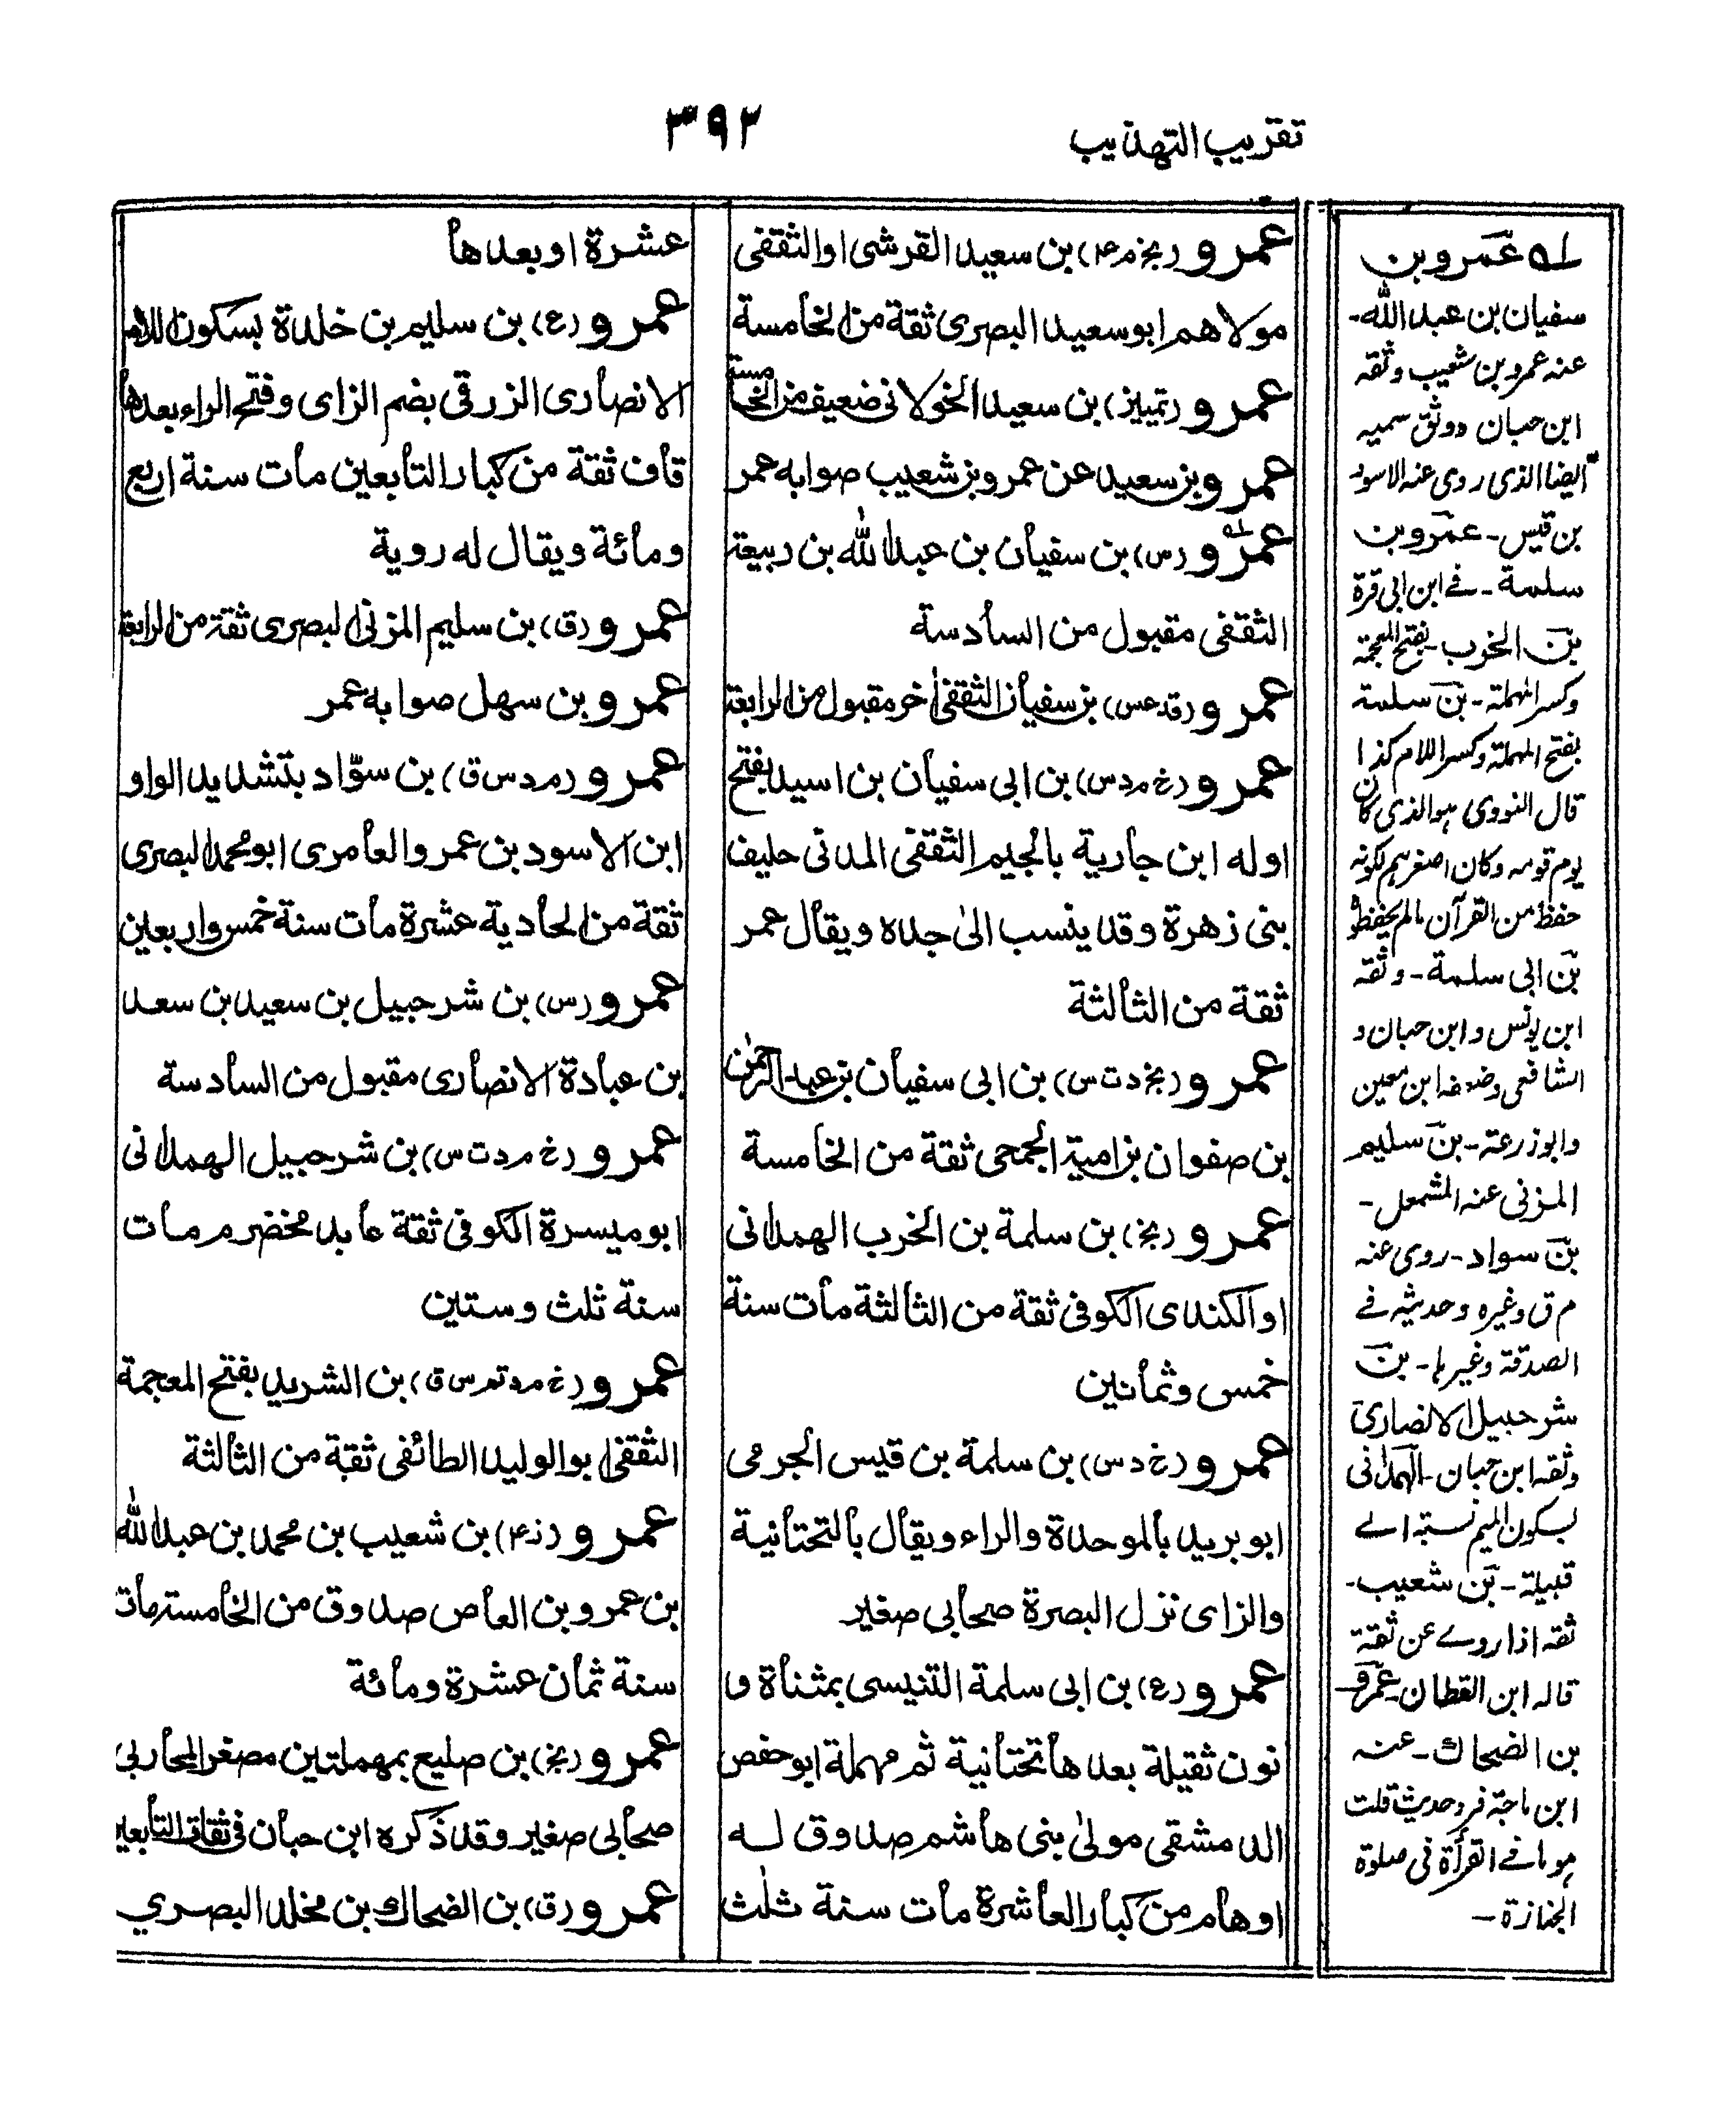 تقريب التهذيب
٣٩٢
عمرو (بخ م ٤) بن سعيد القرشى او الثقفى
مولاهم ابو سعيد البصرى ثقة من الخامسة
عمرو (تمييز) بن سعيد الخولانى ضعيف من الخامسة
عمرو بن سعيد عن عمرو بن شعيب صوابه عمر
عمرو (س) بن سفيان بن عبد الله بن ربيعة
الثقفى مقبول من السادسة
عمرو (قد عس) بن سفيان الثقفى اخر مقبول من الرابعة
عمرو (خ م د س) بن ابى سفيان بن اسيد بفتح
اوله ابن جارية بالجيم الثقفى المدنى حليف
بنى زهرة وقد ينسب الىٰ جده ويقال عمر
ثقة من الثالثة
عمرو (بخ د ت س) بن ابى سفيان بن عبد الرحمٰن
بن صفوان بن امية الجمحى ثقة من الخامسة
عمرو (بخ) بن سلمة بن الخرب الهمدانى
او الكندى الكوفى ثقة من الثالثة مات سنة
خمس وثمانين
عمرو (خ د س) بن سلمة بن قيس الجرمى
ابو بريد بالموحدة والراء ويقال بالتحتانية
والزاى نزل البصرة صحابى صغير
عمرو (ع) بن ابى سلمة التنيسى بمثناة و
نون ثقيلة بعدها تحتانية ثم مهملة ابو حفص
الدمشقى مولىٰ بنى هاشم صدوق له
اوهام من كبار العاشرة مات سنة ثلٰث
عشرة او بعدها
عمرو (ع) بن سليم بن خلدة بسكون اللام
الانصارى الزرقى بضم الزاى وفتح الراء بعدها
قاف ثقة من كبار التابعين مات سنة اربع
ومائة ويقال له روية
عمرو (ق) بن سليم المزنى البصرى ثقة من الرابعة
عمرو بن سهل صوابه عمر
عمرو (م د س ق) بن سوّاد بتشديد الواو
ابن الاسود بن عمرو العامرى ابو محمد البصرى
ثقة من الحادية عشرة مات سنة خمس واربعين
عمرو (س) بن شرحبيل بن سعيد بن سعد
بن عبادة الانصارى مقبول من السادسة
عمرو (خ م د ت س) بن شرحبيل الهمدانى
ابو ميسرة الكوفى ثقة عابد مخضرم مات
سنة ثلث وستين
عمرو (خ م د تم س ق) بن الشريد بفتح المعجمة
الثقفى ابو الوليد الطائفى ثقة من الثالثة
عمرو (ز ٤) بن شعيب بن محمد بن عبد الله
بن عمرو بن العاص صدوق من الخامسة مات
سنة ثمان عشرة ومائة
عمرو (بخ) بن صليع بمهملتين مصغر المحاربى
صحابى صغير وقد ذكره ابن حبان فى ثقات التابعين
عمرو (ق) بن الضحاك بن مخلد البصري
له عمرو بن
سفيان بن عبد الله-
عنه عمرو بن شعيب وثقه
ابن حبان ووثق سميه
ايضا الذى روى عنه الاسود
بن قيس- عمرو بن
سلمة- فے ابن ابى قرة
بن الخرب- بفتح المعجمة
وكسر المهملة- بن سلمة
بفتح المهملة وكسر اللام كذا
قال النووى هو الذى كان
يوم قومه وكان اصغرهم لكونه
حفظ من القرآن مالم يحفظوا
بن ابى سلمة- وثقه
ابن يونس وابن حبان و
الشافعى وضعفه ابن معين
وابو زرعة- بن سليم
المزنى عنه المشمعل-
بن سواد- روى عنه
م ق وغيره وحديثه فے
الصدقة وغيرها- بن
شرحبيل الانصارى
وثقه ابن حبان- الهمدانى
بسكون الميم نسبة الے
قبيلة- بن شعيب-
ثقه اذا روے عن ثقة
قاله ابن القطان- عمرو
بن الضحاك- عنه
ابن ماجة فرد حديث قلت
هو ما فے القرأة فى صلوة
الجنازة-